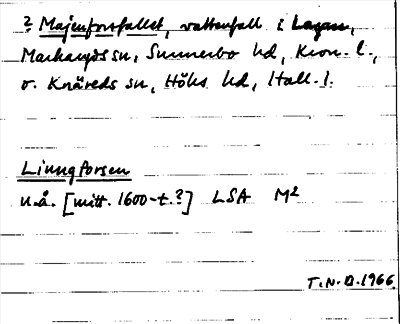 ? Majenforsfallet, vattenfall i Lagan,
Markaryds sn, Sunnerbo hd, Kron. l.,
o. Knäreds sn, Höks hd, Hall. l.
Ljungforsen
u.å. [mitt. 1600-t.?] LSA M²
T.N.D. 1966